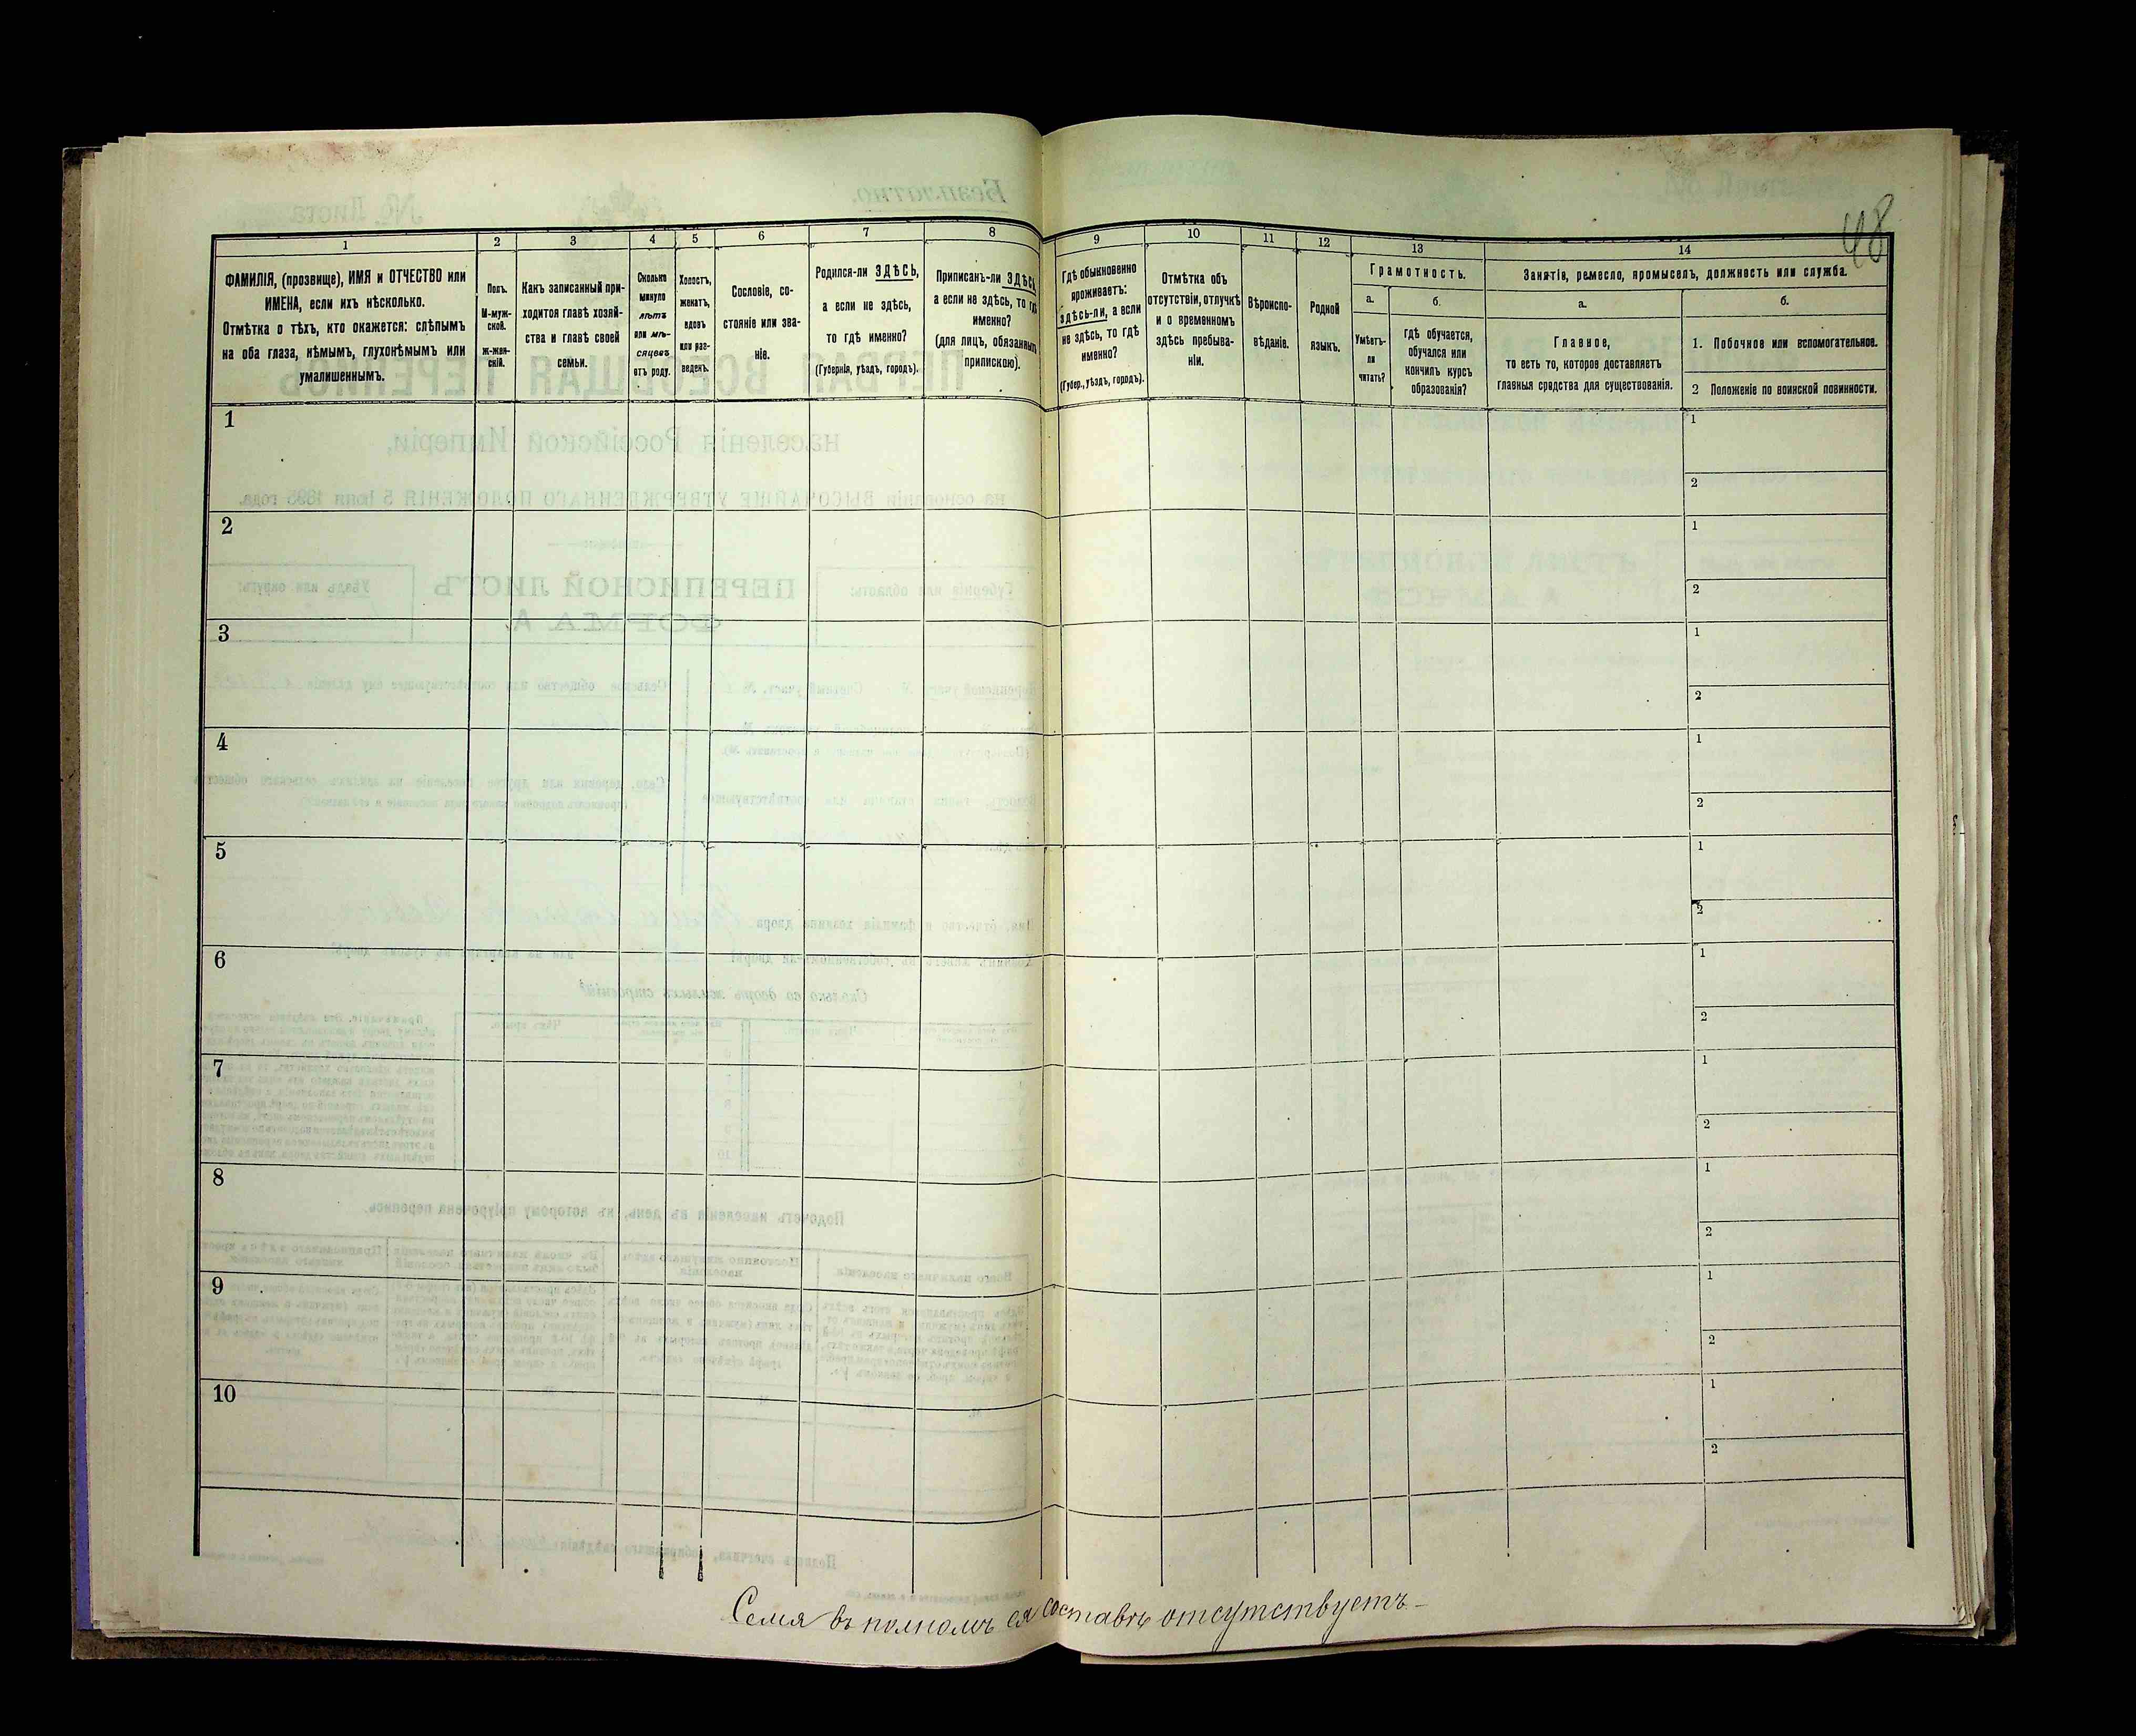 48
1 2 3 4 5 6 7 8 9 10 11 12 13 14
ФАМИЛІЯ, (прозвище), ИМЯ и ОТЧЕСТВО или
ИМЕНА, если ихъ нѣсколько.
Отмѣтка о тѣхъ, кто окажется: слѣпымъ
на оба глаза, нѣмымъ, глухонѣмымъ или
умалишеннымъ.
Полъ.
М-муж-
ской.
ж-жен-
скій.
Какъ записанный при-
ходится главѣ хозяй-
ства и главѣ своей
семьи.
Сколько
минуло
лѣтъ
или мѣ-
сяцевъ
отъ роду.
Холостъ,
женатъ,
вдовъ
или раз-
веденъ.
Сословіе, со-
стояніе или зва-
ніе.
Родился-ли ЗДѢСЬ,
а если не здѣсь,
то гдѣ именно?
(Губернія, уѣздъ, городъ).
Приписанъ-ли ЗДѢСЬ,
а если не здѣсь, то гдѣ
именно?
(для лицъ, обязанныхъ
припискою).
Гдѣ обыкновенно
проживаетъ:
здѣсь-ли, а если
не здѣсь, то гдѣ
именно?
(Губер., уѣздъ, городъ).
Отмѣтка объ
отсутствіи, отлучкѣ
и о временномъ
здѣсь пребыва-
ніи.
Вѣроиспо-
вѣданіе.
Родной
языкъ.
Грамотность.
а.
Умѣетъ-
ли
читать?
б.
гдѣ обучается,
обучался или
кончилъ курсъ
образованія?
Занятіе, ремесло, промыселъ, должность или служба.
а.
Главное,
то есть то, которое доставляетъ
главныя средства для существованія.
б.
1. Побочное или вспомогательное.
2 Положеніе по воинской повинности.
1 1
2
2 1
2
3 1
2
4 1
2
5 1
2
6 1
2
7 1
2
8 1
2
9 1
2
10 1
2
Семя въ полномъ ея составѣ отсутствуетъ. –